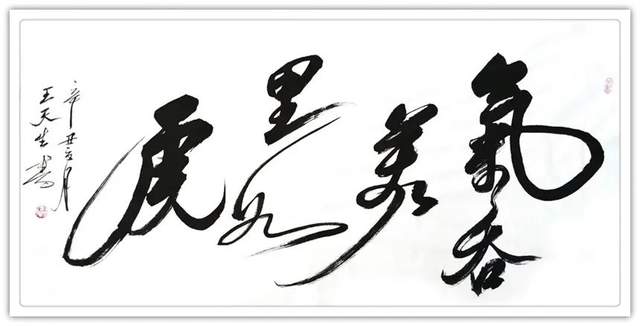 氣吞
萬
里如
虎
辛丑月
王天生書